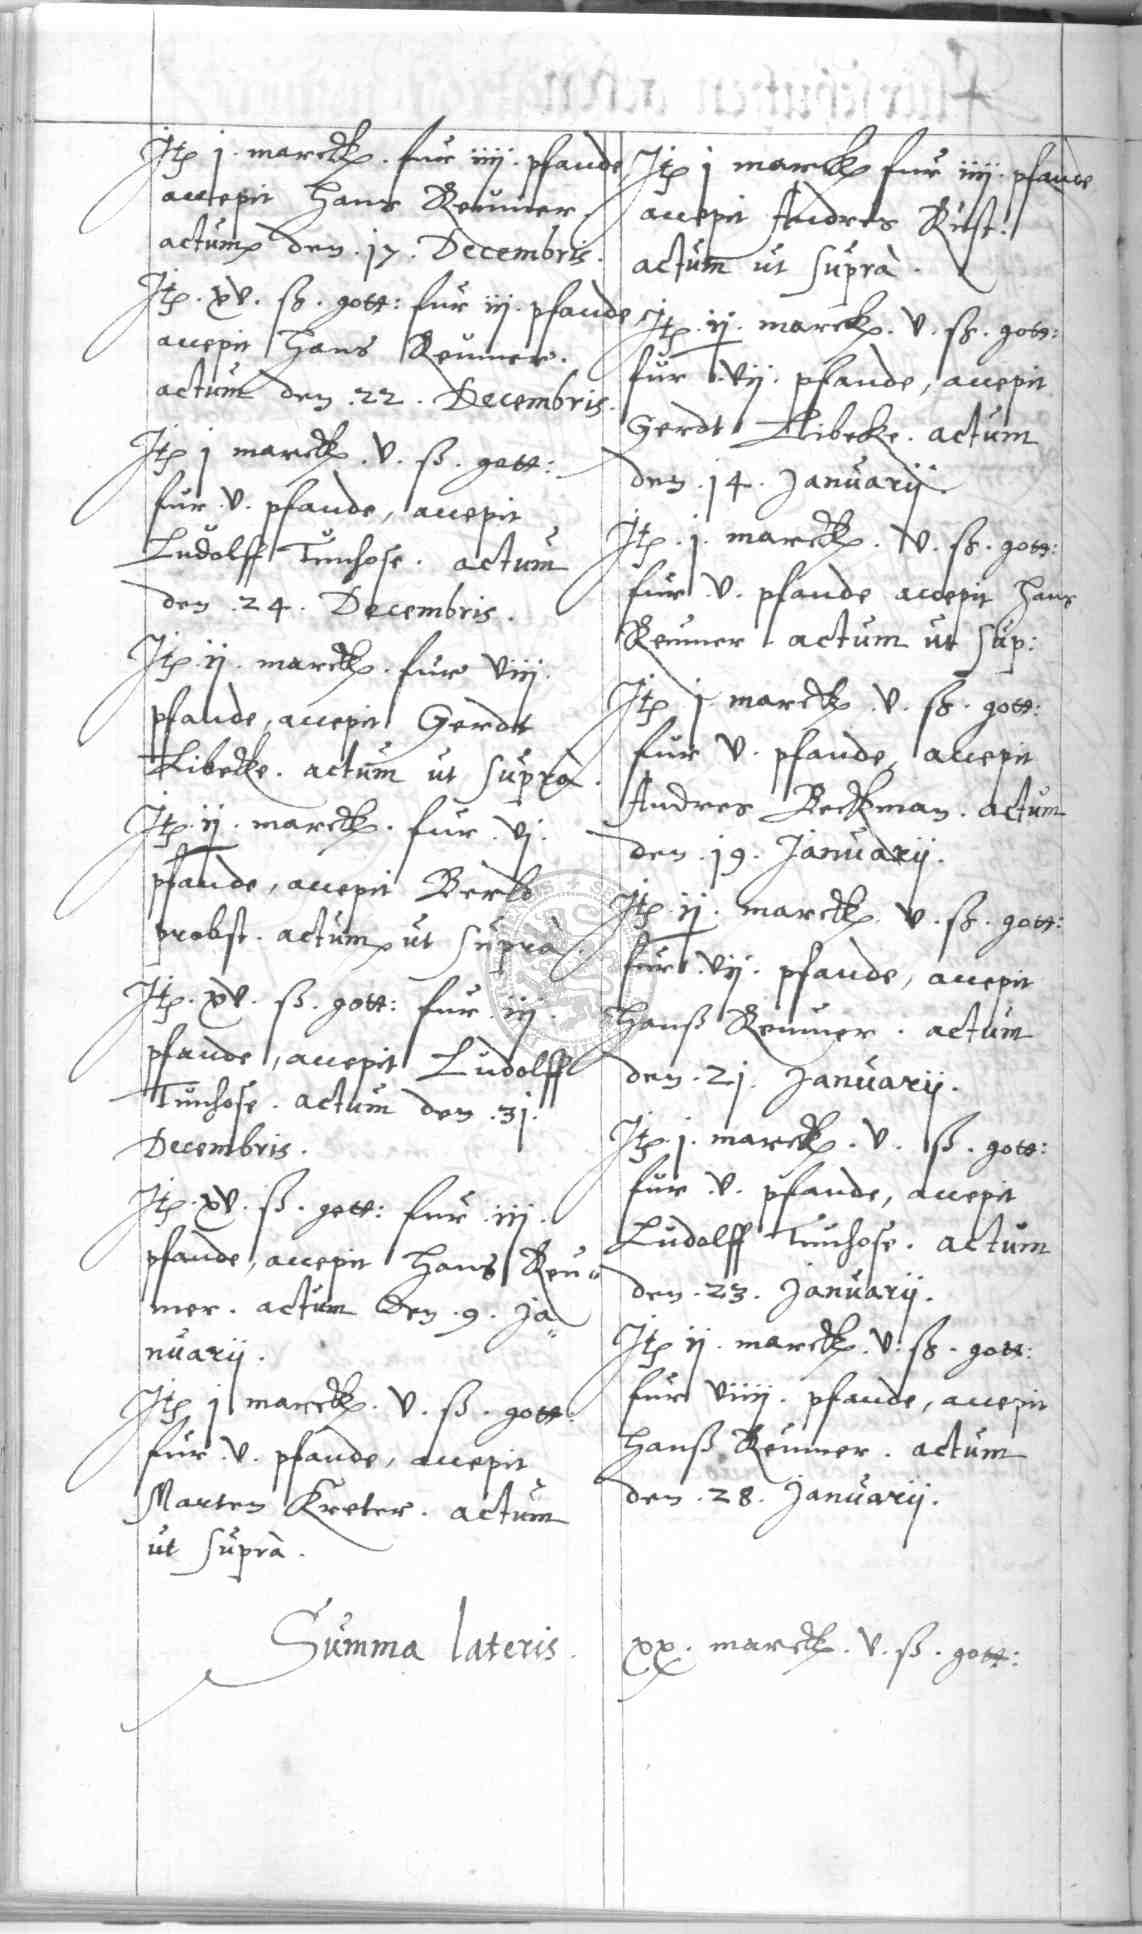 Itꝑ j. marckꝑ. fur iiij. pfande
accepit Hans Reumer.
actumꝑ den .17. Decembris.
Itꝑ. xv. ß. gott: fur iij. pfande
accepit Hans Reumer.
actum den .22. Decembris.
Itꝑ j marckꝑ. v. ß. gott:
fur .v. pfande, accepit
Ludolff Tunhose. actum
den .24. Decembris.
Itꝑ. ij. marckꝑ. fur viij.
pfande, accepit Gerdt
Libecke. actum ut suprà.
Itꝑ. ij. marckꝑ. fur .vj.
pfande, accepit Berld
probst. actumꝑ ut suprà.
Itꝑ. xv. ß. gott: fur .iij.
pfande, accepit Ludolff
Tunhose. actum den .31.
Decembris.
Itꝑ. xv. ß. gott: fur .iij.
pfande, accepit Hans Reu=
mer. actum den .9. Ja=
nuarij.
Itꝑ j marckꝑ. v. ß. gott:
fur .v. pfande, accepit
Marten Kreter. actum
ut suprà.
Itꝑ j marckꝑ fur iiij. pfande
accepit Andres Rust.
actum ut suprà.
Itꝑ. ij. marckꝑ. v. ß. gott:
fur .vij. pfande, accepit
Gerdt Libecke. actum
den .14. Januarij.
Itꝑ. j. marckꝑ. v. ß. gott:
fur .v. pfande accepit Hans
Reumer. actum ut sup:
Itꝑ j. marckꝑ .v. ß. gott:
fur v. pfande, accepit
Andres Beckman. actum
den .19. Januarij.
Itꝑ. ij. marckꝑ. v. ß. gott:
fur .vij. pfande, accepit
Hanß Reumer. actum
den .21. Januarij.
Itꝑ. j. marckꝑ. v. ß. gott:
fur .v. pfande, accepit
Ludolff Tunhose. actum
den .23. Januarij.
Itꝑ ij. marckꝑ. v. ß. gott:
fur viiij. pfande, accepit
Hanß Reumer. actum
den .28. Januarij.
Summa lateris. xx. marckꝑ. v. ß. gott: